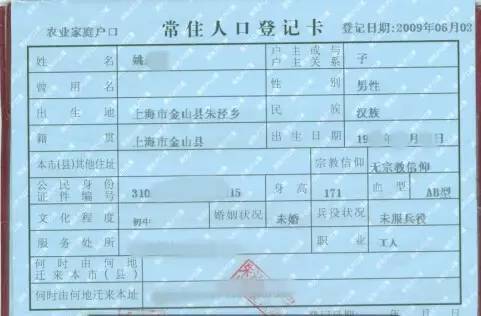 农业家庭户口 常住人口登记卡 登记日期:2009年06月02
姓名 姚 户主或与户主关系 子
曾用名 性别 男性
出生地 上海市金山县朱泾乡 民族 汉族
籍贯 上海市金山县 出生日期 19 年 月
本市(县)其他住址 宗教信仰 无宗教信仰
公民身份证件编号 310 15 身高 171 血型 AB型
文化程度 初中 婚姻状况 未婚 兵役状况 未服兵役
服务处所 职业 工人
何时由何地迁来本市(县)
何时由何地迁来本址
登记日期: 年 月 日